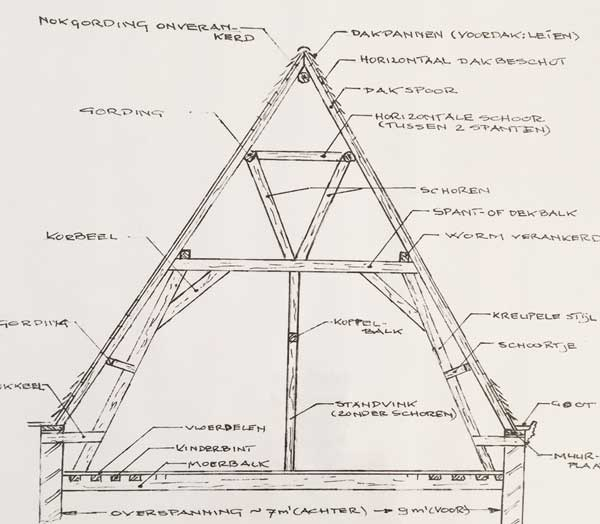 NOKGORDING ONVERAN-
KERD
DAKPANNEN (VOORDAK; LEIEN)
HORIZONTAAL DAKBESCHOT
DAKSPOOR
GORDING
HORIZONTALE SCHOOR
(TUSSEN 2 SPANTEN)
SCHOREN
SPANT- OF DEKBALK
KORBEEL
WORM VERANKERD
KREUPELE STIJL
GORDING
KOPPEL-
BALK
SCHOORTJE
UKKEEL
STANDVINK
(ZONDER SCHOREN)
GOOT
VLOERDELEN
KINDERBINT
MOERBALK
MUUR-
PLAA
OVERSPANNING ~ 7m' (ACHTER) → 9m' (VOOR)